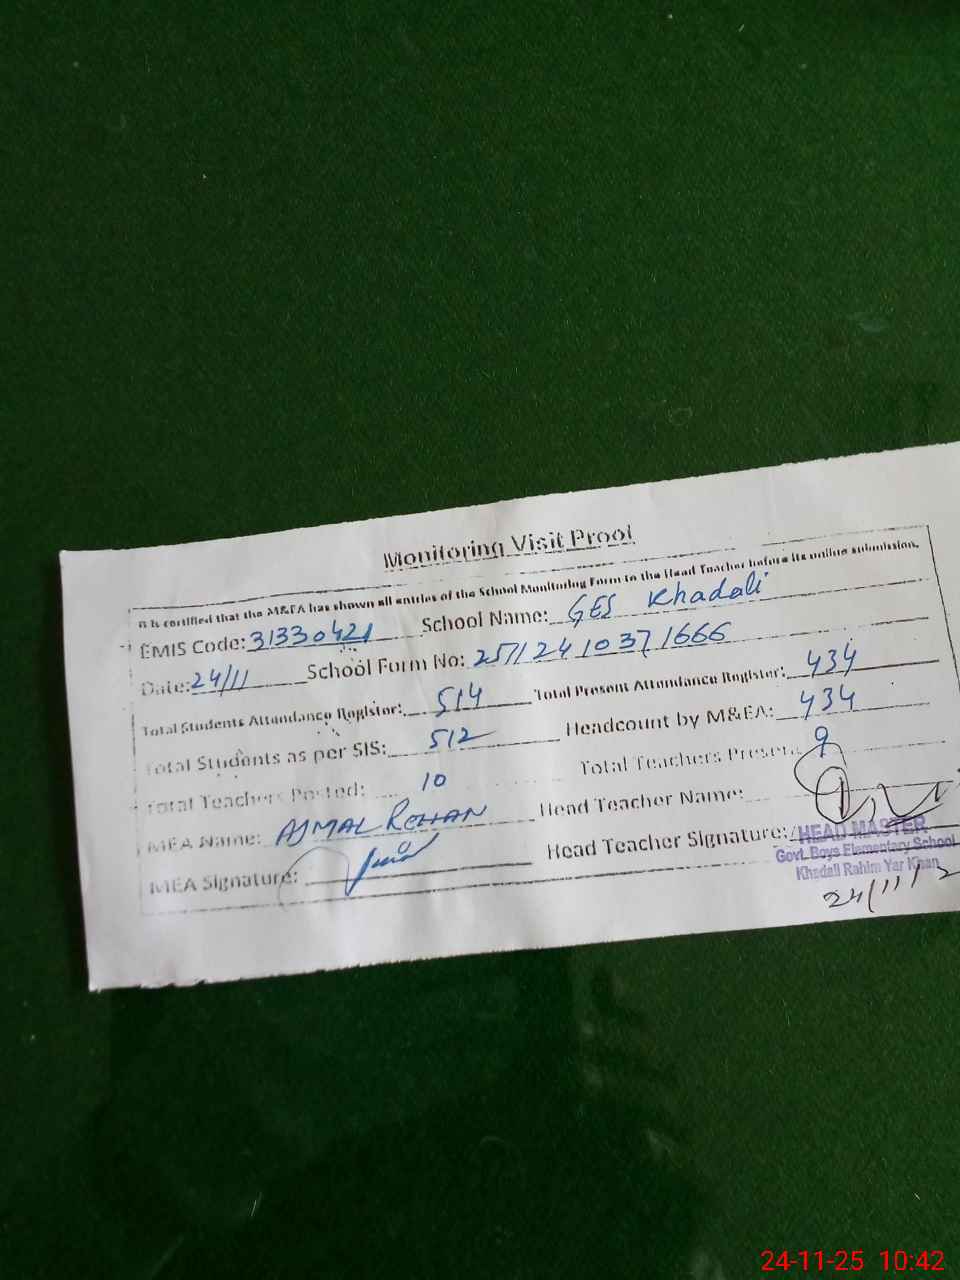 Monitoring Visit Proof
It is certified that the M&EA has shown all entries of the School Monitoring Form to the Head Teacher before its online submission.
EMIS Code: 31330421 School Name: GES Khadali
Date: 24/11 School Form No: 2571241037 1666
Total Students Attendance Register: 514 Total Present Attendance Register: 434
Total Students as per SIS: 512 Headcount by M&EA: 434
Total Teachers Posted: 10 Total Teachers Present: 9
MEA Name: AJMAL REHAN Head Teacher Name:
MEA Signature: Head Teacher Signature:
HEAD MASTER
Govt. Boys Elementary School
Khadali Rahim Yar Khan
24/11/2
24-11-25 10:42